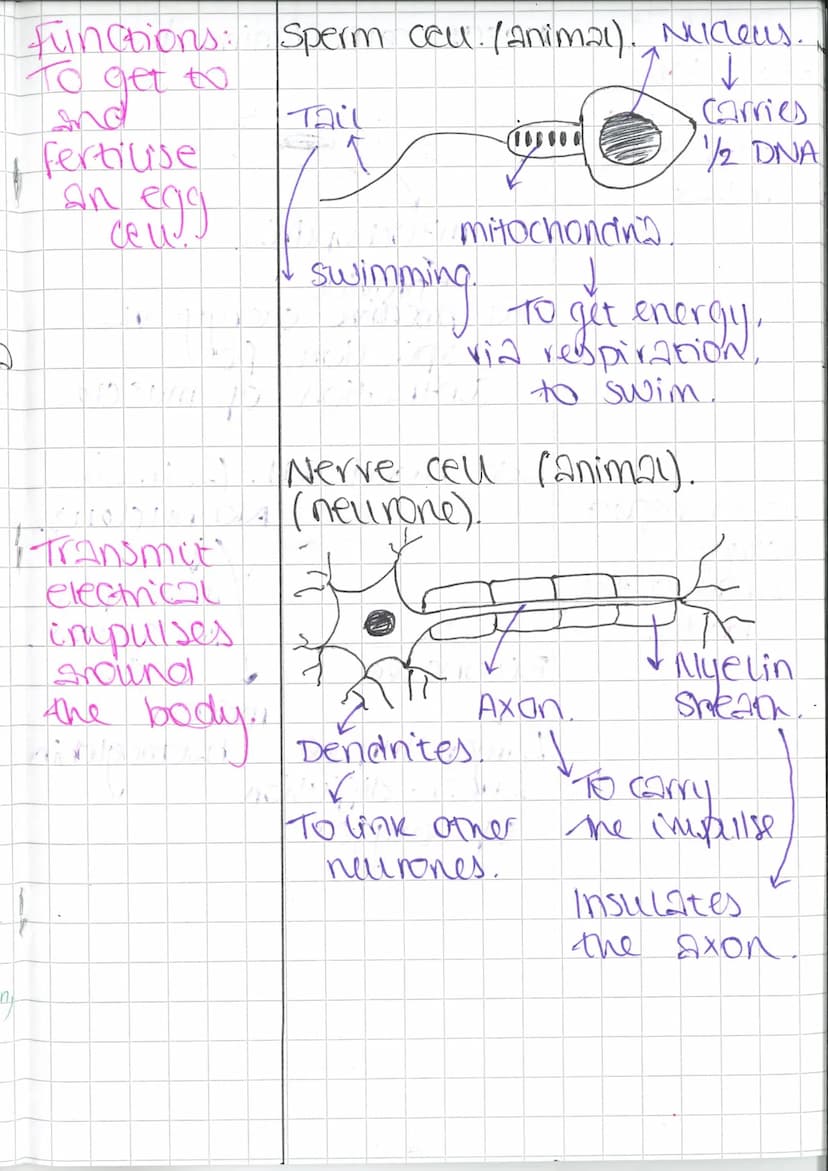 Functions:
To get to
and
fertilise
an egg
cell.
Sperm cell. (animal).
Nucleus.
Carries
1/2 DNA
Tail
swimming.
mitochondria.
To get energy,
via respiration,
to swim.
Transmit
electrical
impulses
around
the body.
Nerve cell (animal).
(neurone).
Dendrites.
To link other
neurones.
Axon.
To carry
the impulse
Myelin
sheath.
Insulates
the axon.